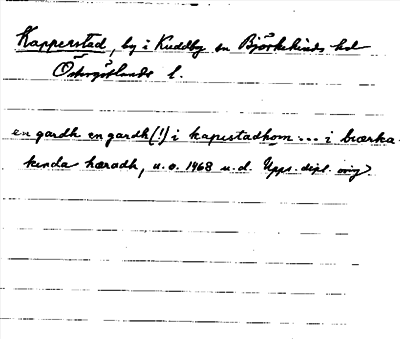 Kapperstad, by i Kuddby sn Björkekinds hd
Östergötlands l.
en gardh en gardh (!) i kapistadhom ... i biærka-
kinda hæradh, u.o. 1468 u.d. Upps. dipl. orig